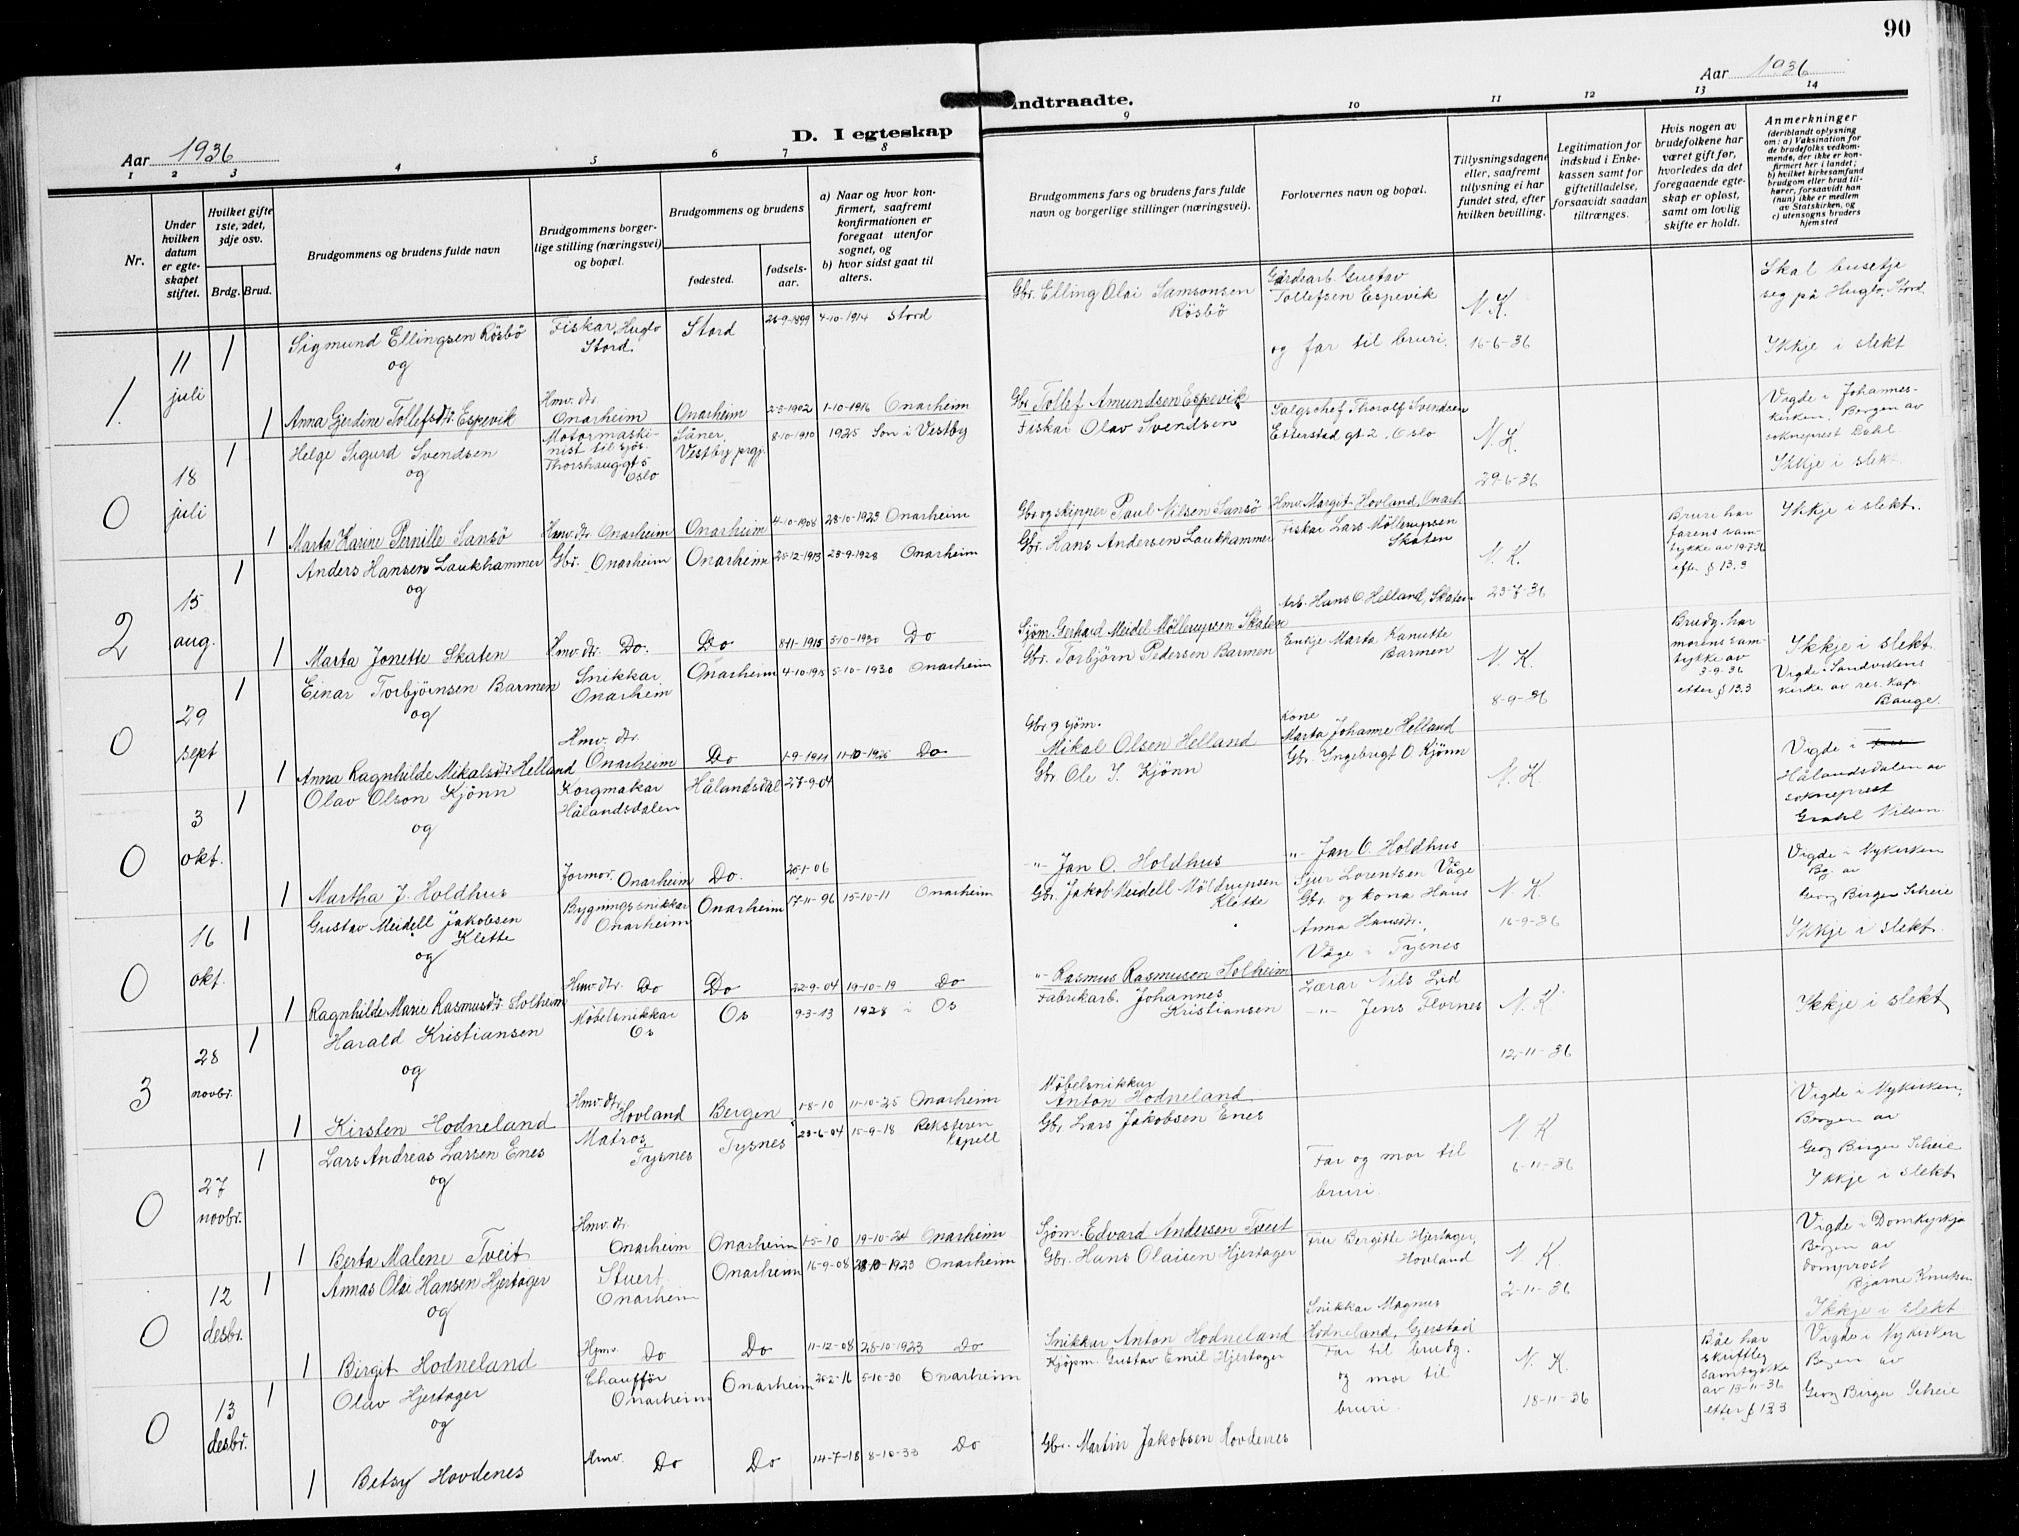 90
Aar 1936
D. I egteskap indtraadte.
Aar 1936
1 2 3 4 5 6 7 8 9 10 11 12 13 14
Nr.
Under hvilken datum er egteskapet stiftet.
Hvilket gifte 1ste, 2det, 3dje osv.
Brdg. Brud.
Brudgommens og brudens fulde navn
Brudgommens borgerlige stilling (næringsvei) og bopæl.
Brudgommens og brudens
fødested.
fødselsaar.
a) Naar og hvor konfirmert, saafremt konfirmationen er foregaat utenfor sognet, og
b) hvor sidst gaat til alters.
Brudgommens fars og brudens fars fulde navn og borgerlige stillinger (næringsvei).
Forlovernes navn og bopæl.
Tillysningsdagene eller, saafremt tillysning ei har fundet sted, efter hvilken bevilling.
Legitimation for indskud i Enkekassen samt for giftetilladelse, forsaavidt saadan tiltrænges.
Hvis nogen av brudefolkene har været gift før, hvorledes da det foregaaende egteskap er opløst, samt om lovlig skifte er holdt.
Anmerkninger
(deriblandt oplysning om: a) Vaksination for de brudefolks vedkommende, der ikke er konfirmert her i landet; b) hvilket kirkesamfund brudgom eller brud tilhører, forsaavidt han (hun) ikke er medlem av Statskirken, og c) utensogns bruders hjemsted
1. 11 juli 1 Sigmund Ellingsen Røsbø og Fiskar, Huglo Stord. Stord 26-9-1899 4-10-1914 Stord
Gbr. Elling Olai Samsonsen Røsbø
Gårdearb. Gustav Tollefsen Espevik og far til bruri.
N. K. 16-6-36
Skal busetje seg på Huglo, Stord.
Ikkje i slekt
1 Anna Gjerdine Tollefsdtr. Espevik Hmv. dtr. Onarheim Onarheim 2-3-1902 1-10-1916 Onarheim
Gbr. Tollef Amundsen Espevik
0 18 juli 1 Helge Sigurd Svendsen og Motormaskinist til sjøs. Thorshauggt 5 Oslo Såner, Vestby prgj. 8-10-1910 1925 Son i Vestby
Fiskar Olav Svendsen
Salgschef Thorolf Svendsen Etterstad gt 2, Oslo
N. K. 29-6-36
Vigde i Johanneskirken, Bergen av sokneprest Dahl.
Ikkje i slekt
1 Marta Karine Pernille Sansø Hmv. dtr. Onarheim Onarheim 4-10-1908 28-10-1923 Onarheim
Gbr og skipper Paul Nilsen Sansø
Hmv. Margit Hovland, Onarh.
2 15 aug. 1 Anders Hansen Laukhammer og Gbr. Onarheim Onarheim 25-12-1913 23-9-1928 Onarheim
Gbr. Hans Andersen Laukhammer
Fiskar Lars Møllerupsen Skaten
Arb. Hans O. Helland, Skaten
N. K. 23-7-36
Brure har farens samtykke av 19-7-36 efter § 13.3
Ikkje i slekt.
1 Marta Jonette Skaten Hmv. dtr. Do. Do 8-11-1915 5-10-1930 Do
Sjøm. Gerhard Meidel Møllerupsen Skaten
0 29 sept 1 Einar Torbjørnsen Barmen og Snikkar Onarheim Onarheim 4-10-1915 5-10-1930 Onarheim
Gbr. Torbjørn Pedersen Barmen
Enkje Marta Kanutte Barmen
N. K. 8-9-36
Brudg. har morens samtykke av 3-9-36 etter § 13.3
Ikkje i slekt.
Vigde i Sandvikens kirke av res. kap. Bauge.
1 Anna Ragnhilde Mikalsdtr Helland Hmv. dtr. Onarheim Do 1-9-1911 11-10-1926 Do
Gbr og sjøm. Mikal Olsen Helland
Kone Marta Johanne Helland
0 3 okt. 1 Olav Olson Kjønn og Korgmakar Hålandsdalen Hålandsdal 27-9-04
Gbr Ole I. Kjønn
Gbr. Ingebrigt O. Kjønn
N. K.
Vigde i Hålandsdalen av sokneprest Grahl Nilsen
1 Martha J. Holdhus Jormor. Onarheim Do. 20-1-06
-"- Jan O. Holdhus
-"- Jan O. Holdhus
0 16 okt. 1 Gustav Meidell Jakobsen Klette og Bygningssnikkar Onarheim Onarheim 17-11-96 15-10-11 Onarheim
Gbr. Jakob Meidell Møldrupsen Klette
Sjur Lorentsen Våge Gbr. og kona Hans Anna Hansdtr. Våge i Tysnes
N. K. 16-9-36
Vigde i Nykirken Bg. av Georg Birger Scheie
Ikkje i slekt.
1 Ragnhilde Marie Rasmusdtr. Solheim Hmv. dtr. Do Do 22-9-04 19-10-19 Do
-"- Rasmus Rasmusen Solheim
3 28 novbr. 1 Harald Kristiansen og Møbelsnikkar Os Os 9-3-13 1928 i Os
Fabrikarb. Johannes Kristiansen
Lærar Nils Lid
-"- Jens Flornes
N. K. 12-11-36
Ikkje i slekt
1 Kirsten Hodneland Hmv. dtr Hovland Bergen 1-8-10 11-10-25 Onarheim
Møbelsnikkar Anton Hodneland
0 27 novbr. 1 Lars Andreas Larsen Enes og Matros, Tysnes Tysnes 23-6-04 15-9-18 Reksteren Kapell
Gbr. Lars Jakobsen Enes
Far og mor til bruri.
N. K 6-11-36
Vigde i Nykirken, Bergen av Georg Birger Scheie
Ikkje i slekt
1 Berta Malene Tveit Hmv. dtr. Onarheim Onarheim 1-5-10 19-10-24 Onarheim
Sjøm. Edvard Andersen Tveit
0 12 desbr. 1 Annas Olai Hansen Hjertager og Stuert Onarheim Onarheim 16-9-08 28-10-1923 Onarheim
Gbr. Hans Olaisen Hjertager
Fru Bergitte Hjertager, Hovland
Snikkar Magnus Hodneland, Gjerstad
N. K 2-11-36
Vigde i Domkyrkja Bergen av domprost Bjarne Knutsen
Ikkje i slekt
1 Birgit Hodneland Hjmv. Do Do 11-12-08 28-10-1923 Do
Snikkar Anton Hodneland
0 13 desbr. 1 Olav Hjertager og Chaufför Onarheim Onarheim 20-2-16 5-10-30 Onarheim
Kjøpm. Gustav Emil Hjertager
Far til brudg. og mor til bruri.
N. K. 18-11-36
Båe har skriftleg samtykke av 13-11-36 etter § 13.3
Vigde i Nykirken Bergen av Georg Birger Scheie
1 Betsy Hovdenes Hmv. Do Do 14-7-18 8-10-33 Do
Gbr. Martin Jakobsen Hovdenes